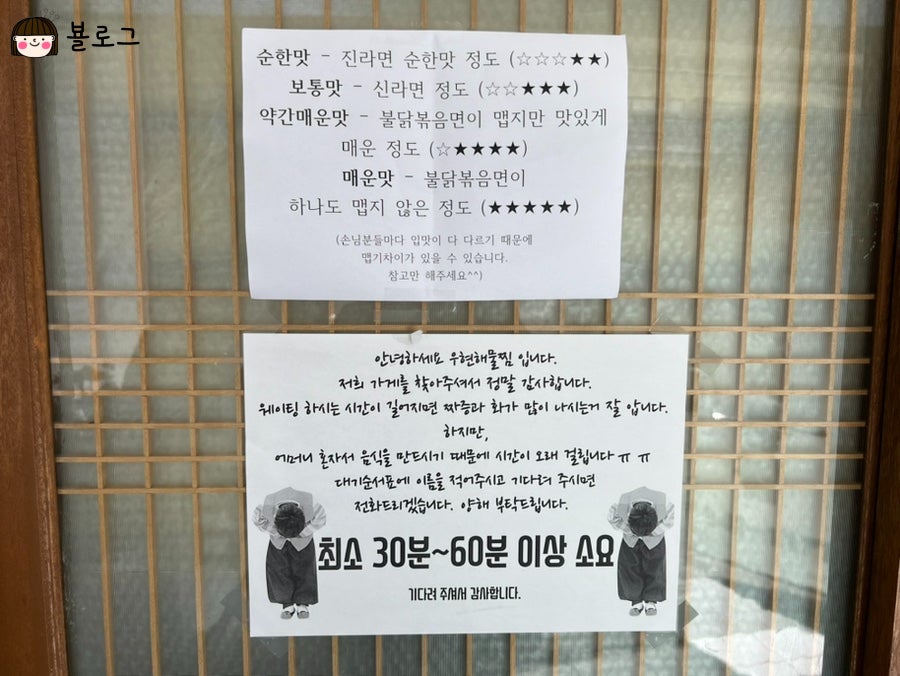 블로그
순한맛 - 진라면 순한맛 정도 (☆☆☆★★)
보통맛 - 신라면 정도 (☆☆★★★)
약간매운맛 - 불닭볶음면이 맵지만 맛있게
매운 정도 (☆★★★★)
매운맛 - 불닭볶음면이
하나도 맵지 않은 정도 (★★★★★)
(손님분들마다 입맛이 다 다르기 때문에
맵기차이가 있을 수 있습니다.
참고만 해주세요^^)
안녕하세요 우현해물찜 입니다.
저희 가게를 찾아주셔서 정말 감사합니다.
웨이팅 하시는 시간이 길어지면 짜증과 화가 많이 나시는거 잘 압니다.
하지만,
어머니 혼자서 음식을 만드시기 때문에 시간이 오래 걸립니다 ㅠ ㅠ
대기순서표에 이름을 적어주시고 기다려 주시면
전화드리겠습니다. 양해 부탁드립니다.
최소 30분~60분 이상 소요
기다려 주셔서 감사합니다.